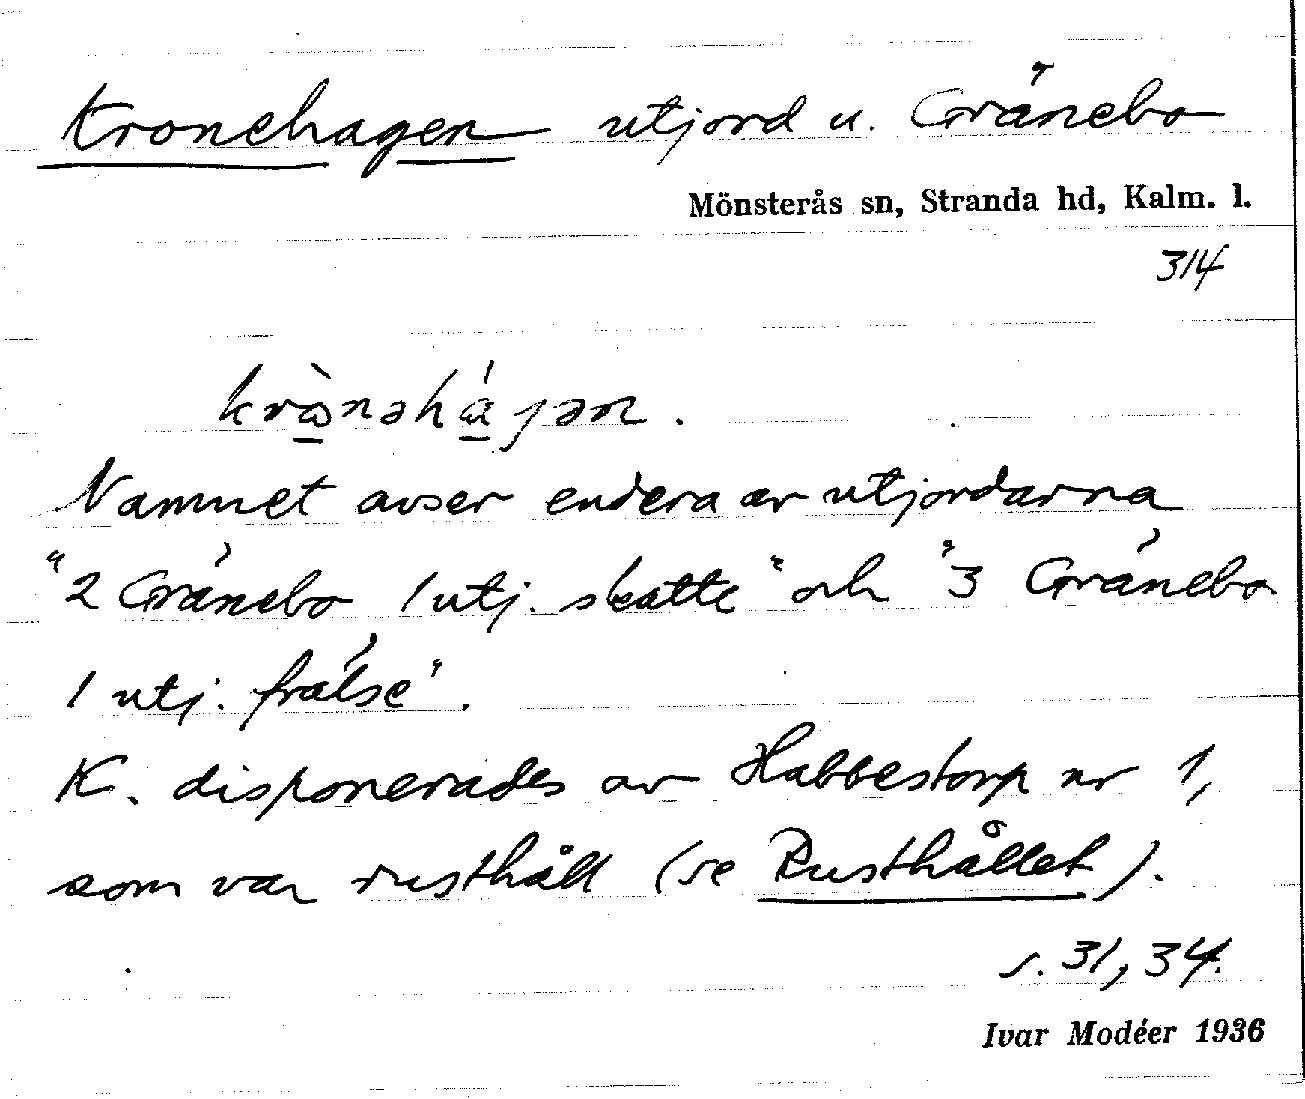 Kronehagen utjord u. Gränebo
Mönsterås sn, Stranda hd, Kalm. l.
314
krὼnəhágən.
Namnet avser endera av utjordarna
"2 Gränebo 1 utj. skatte" och "3 Gränebo
1 utj. frälse".
K. disponerades av Habbestorp nr 1,
som var rusthåll (se Rusthållet).
s. 31, 34.
Ivar Modéer 1936